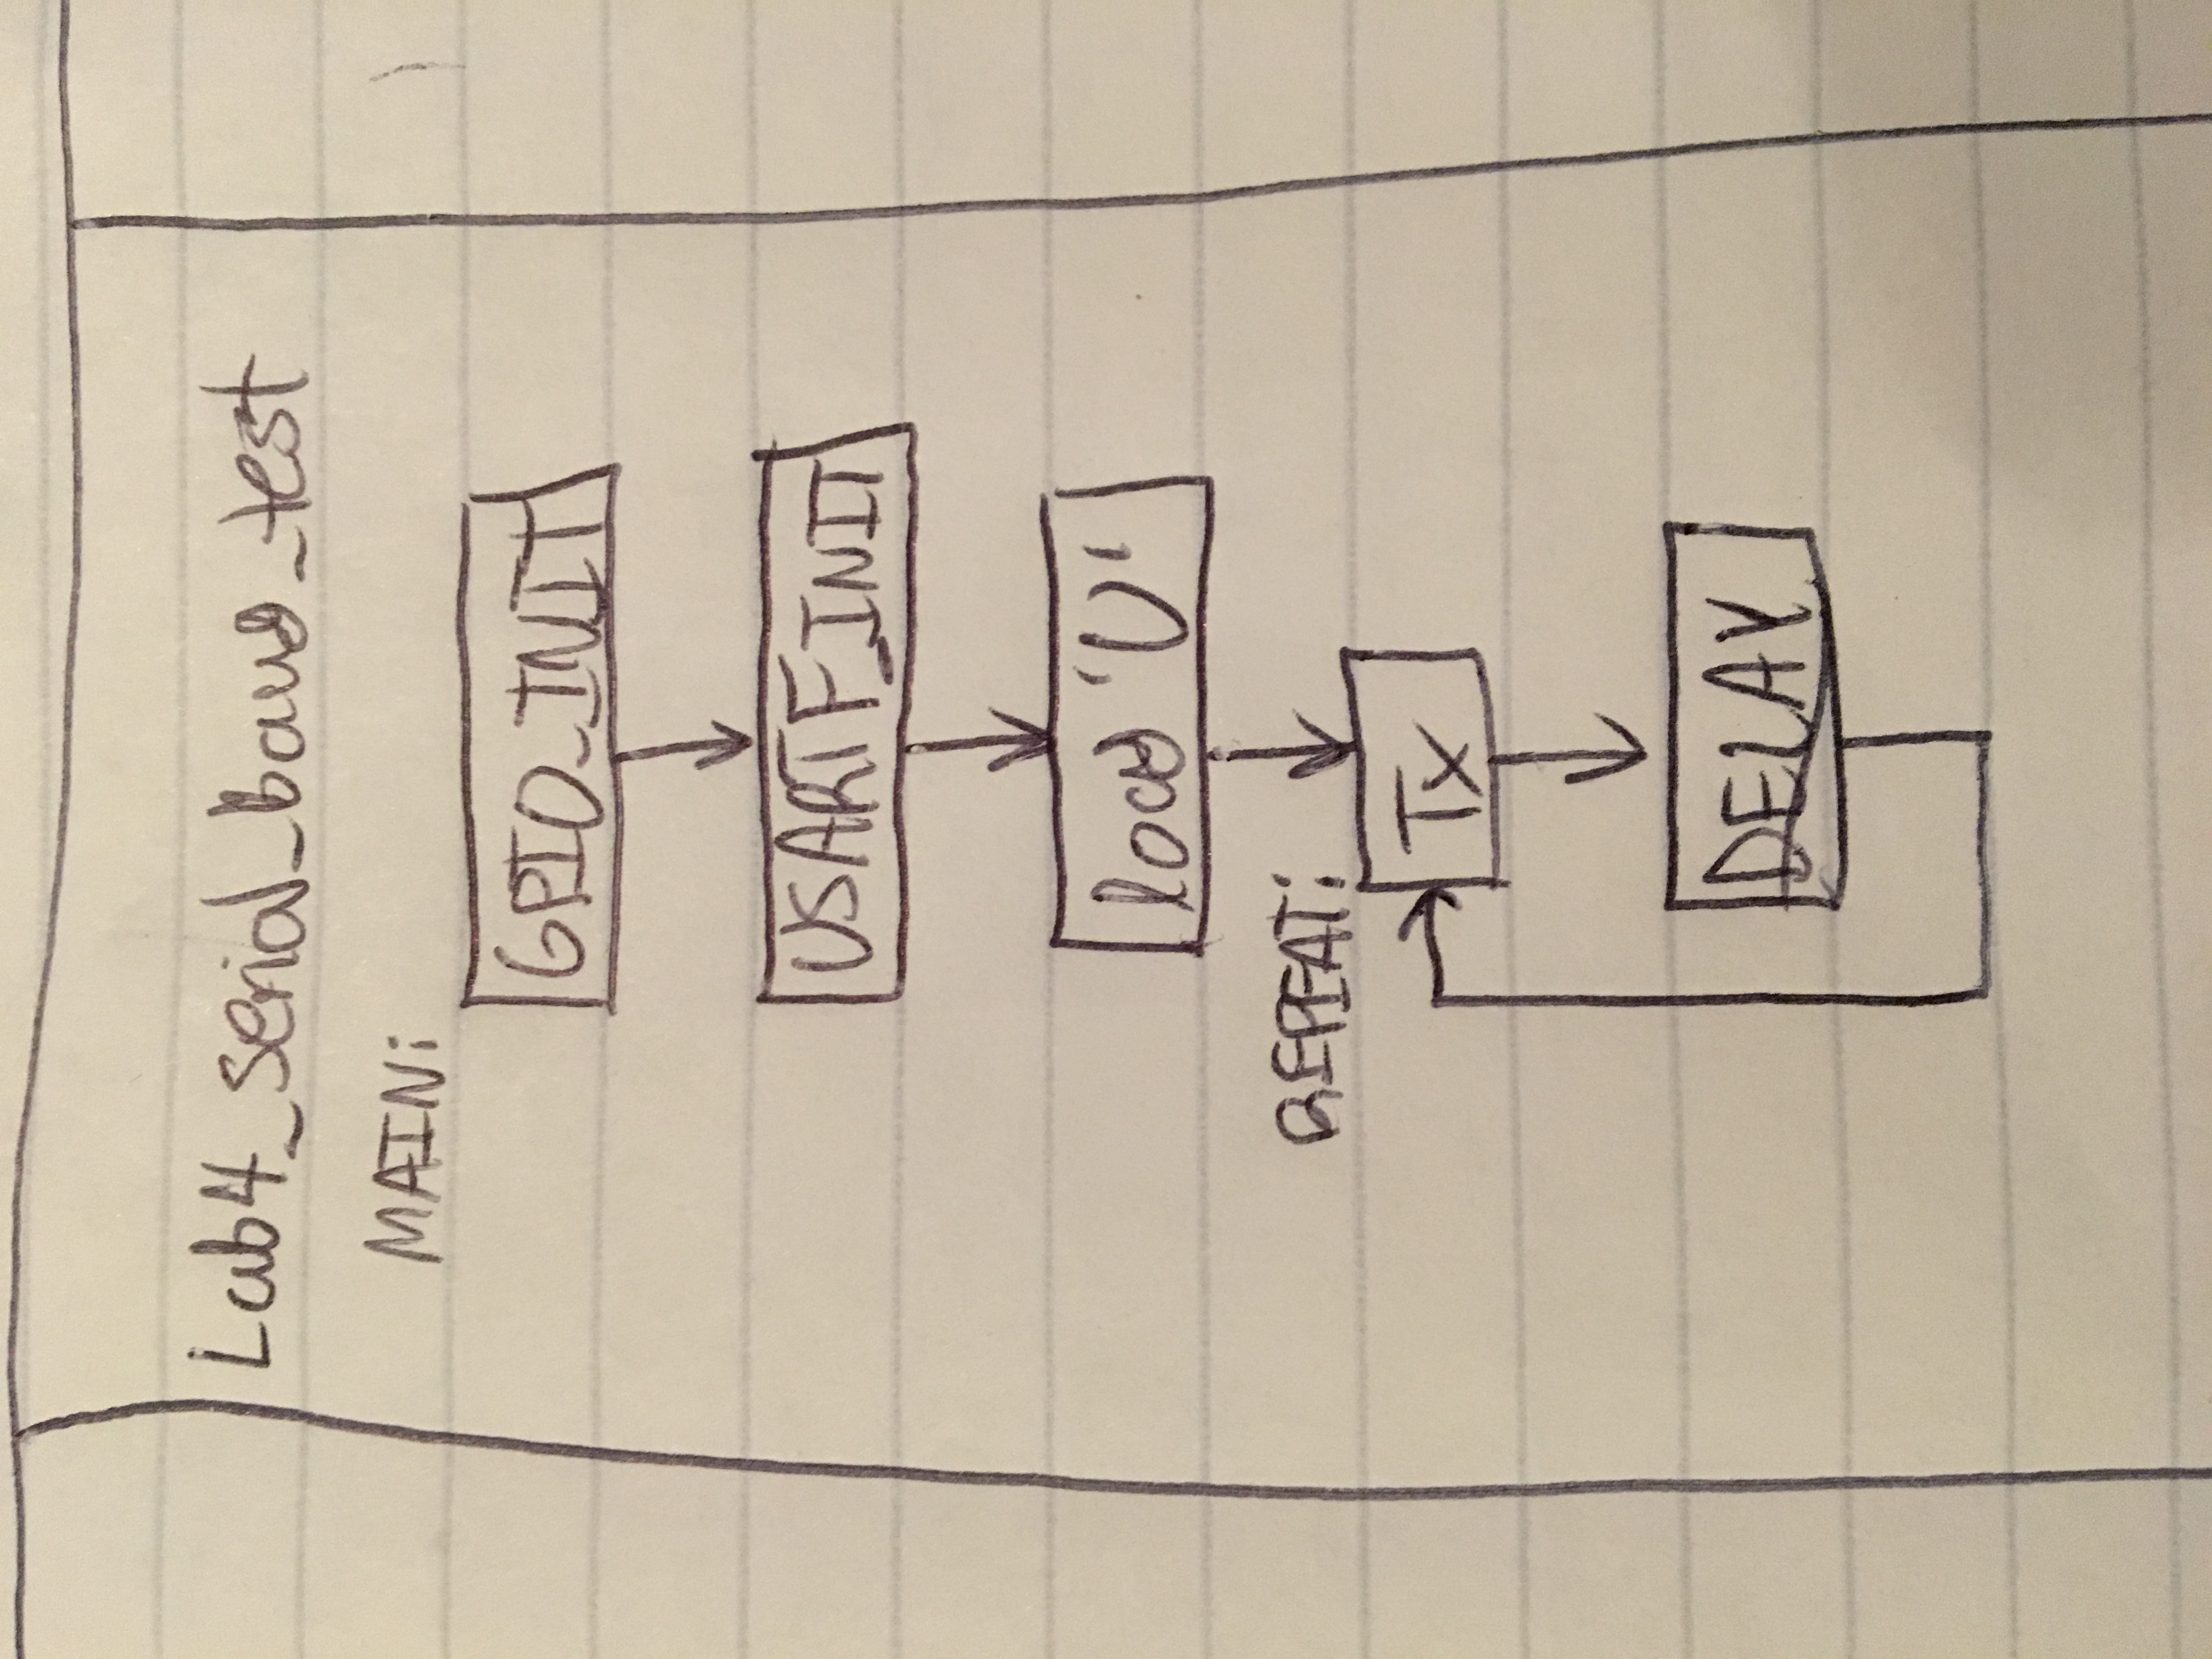 Lab4_serial_baud_test
MAIN:
GPIO_INIT
USARTF_INIT
load 'U'
REPEAT:
Tx
DELAY